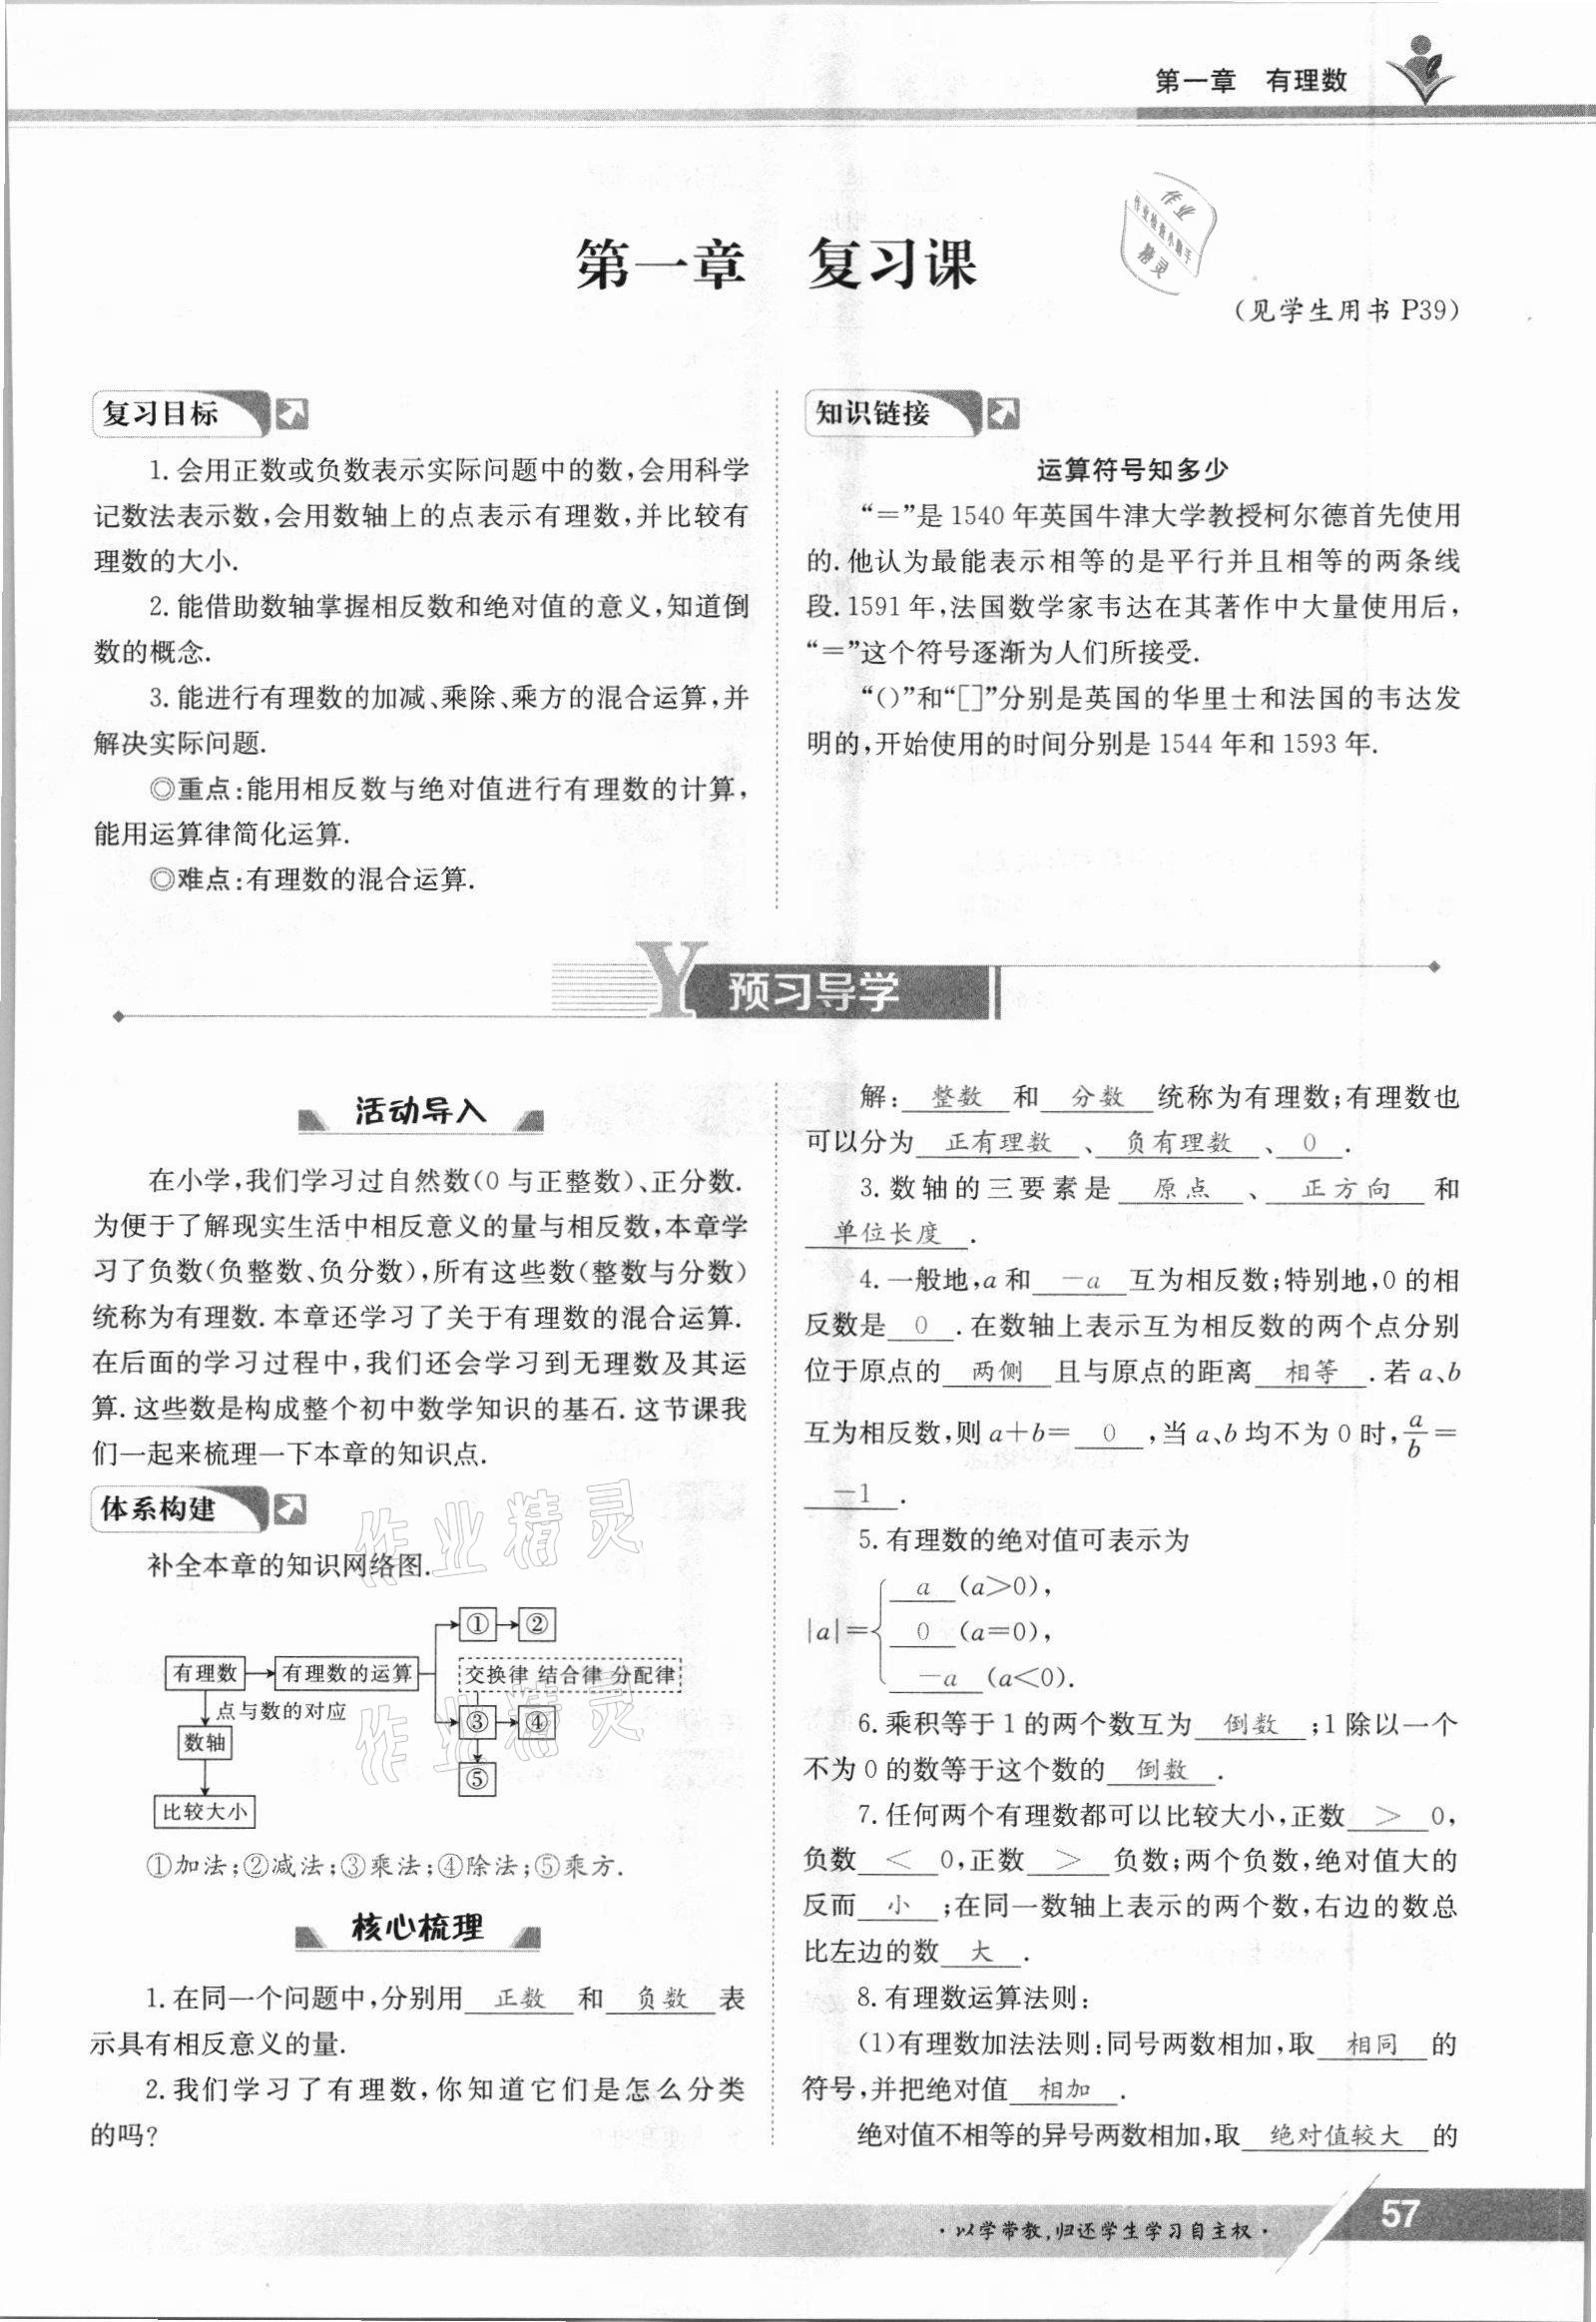 第一章 有理数
第一章 复习课
作业
作业检查小助手
精灵
(见学生用书 P39)
复习目标
1.会用正数或负数表示实际问题中的数,会用科学
记数法表示数,会用数轴上的点表示有理数,并比较有
理数的大小.
2.能借助数轴掌握相反数和绝对值的意义,知道倒
数的概念.
3.能进行有理数的加减、乘除、乘方的混合运算,并
解决实际问题.
◎重点:能用相反数与绝对值进行有理数的计算,
能用运算律简化运算.
◎难点:有理数的混合运算.
知识链接
运算符号知多少
“=”是 1540 年英国牛津大学教授柯尔德首先使用
的.他认为最能表示相等的是平行并且相等的两条线
段.1591 年,法国数学家韦达在其著作中大量使用后,
“=”这个符号逐渐为人们所接受.
“()”和“[]”分别是英国的华里士和法国的韦达发
明的,开始使用的时间分别是 1544 年和 1593 年.
Y 预习导学
活动导入
在小学,我们学习过自然数(0 与正整数)、正分数.
为便于了解现实生活中相反意义的量与相反数,本章学
习了负数(负整数、负分数),所有这些数(整数与分数)
统称为有理数.本章还学习了关于有理数的混合运算.
在后面的学习过程中,我们还会学习到无理数及其运
算.这些数是构成整个初中数学知识的基石.这节课我
们一起来梳理一下本章的知识点.
体系构建
作业精灵
补全本章的知识网络图.
① ②
有理数 有理数的运算 交换律 结合律 分配律
点与数的对应
③ ④
数轴
作业精灵
⑤
比较大小
①加法;②减法;③乘法;④除法;⑤乘方.
核心梳理
1.在同一个问题中,分别用 正数 和 负数 表
示具有相反意义的量.
2.我们学习了有理数,你知道它们是怎么分类
的吗?
解: 整数 和 分数 统称为有理数;有理数也
可以分为 正有理数 、 负有理数 、 0 .
3.数轴的三要素是 原点 、 正方向 和
单位长度 .
4.一般地,a 和 -a 互为相反数;特别地,0 的相
反数是 0 .在数轴上表示互为相反数的两个点分别
位于原点的 两侧 且与原点的距离 相等 .若 a、b
互为相反数,则 a+b= 0 ,当 a、b 均不为 0 时,a/b=
-1 .
5.有理数的绝对值可表示为
a (a>0),
|a|={ 0 (a=0),
-a (a<0).
6.乘积等于 1 的两个数互为 倒数 ;1 除以一个
不为 0 的数等于这个数的 倒数 .
7.任何两个有理数都可以比较大小,正数 > 0,
负数 < 0,正数 > 负数;两个负数,绝对值大的
反而 小 ;在同一数轴上表示的两个数,右边的数总
比左边的数 大 .
8.有理数运算法则:
(1)有理数加法法则:同号两数相加,取 相同 的
符号,并把绝对值 相加 .
绝对值不相等的异号两数相加,取 绝对值较大 的
·以学带教,归还学生学习自主权·
57